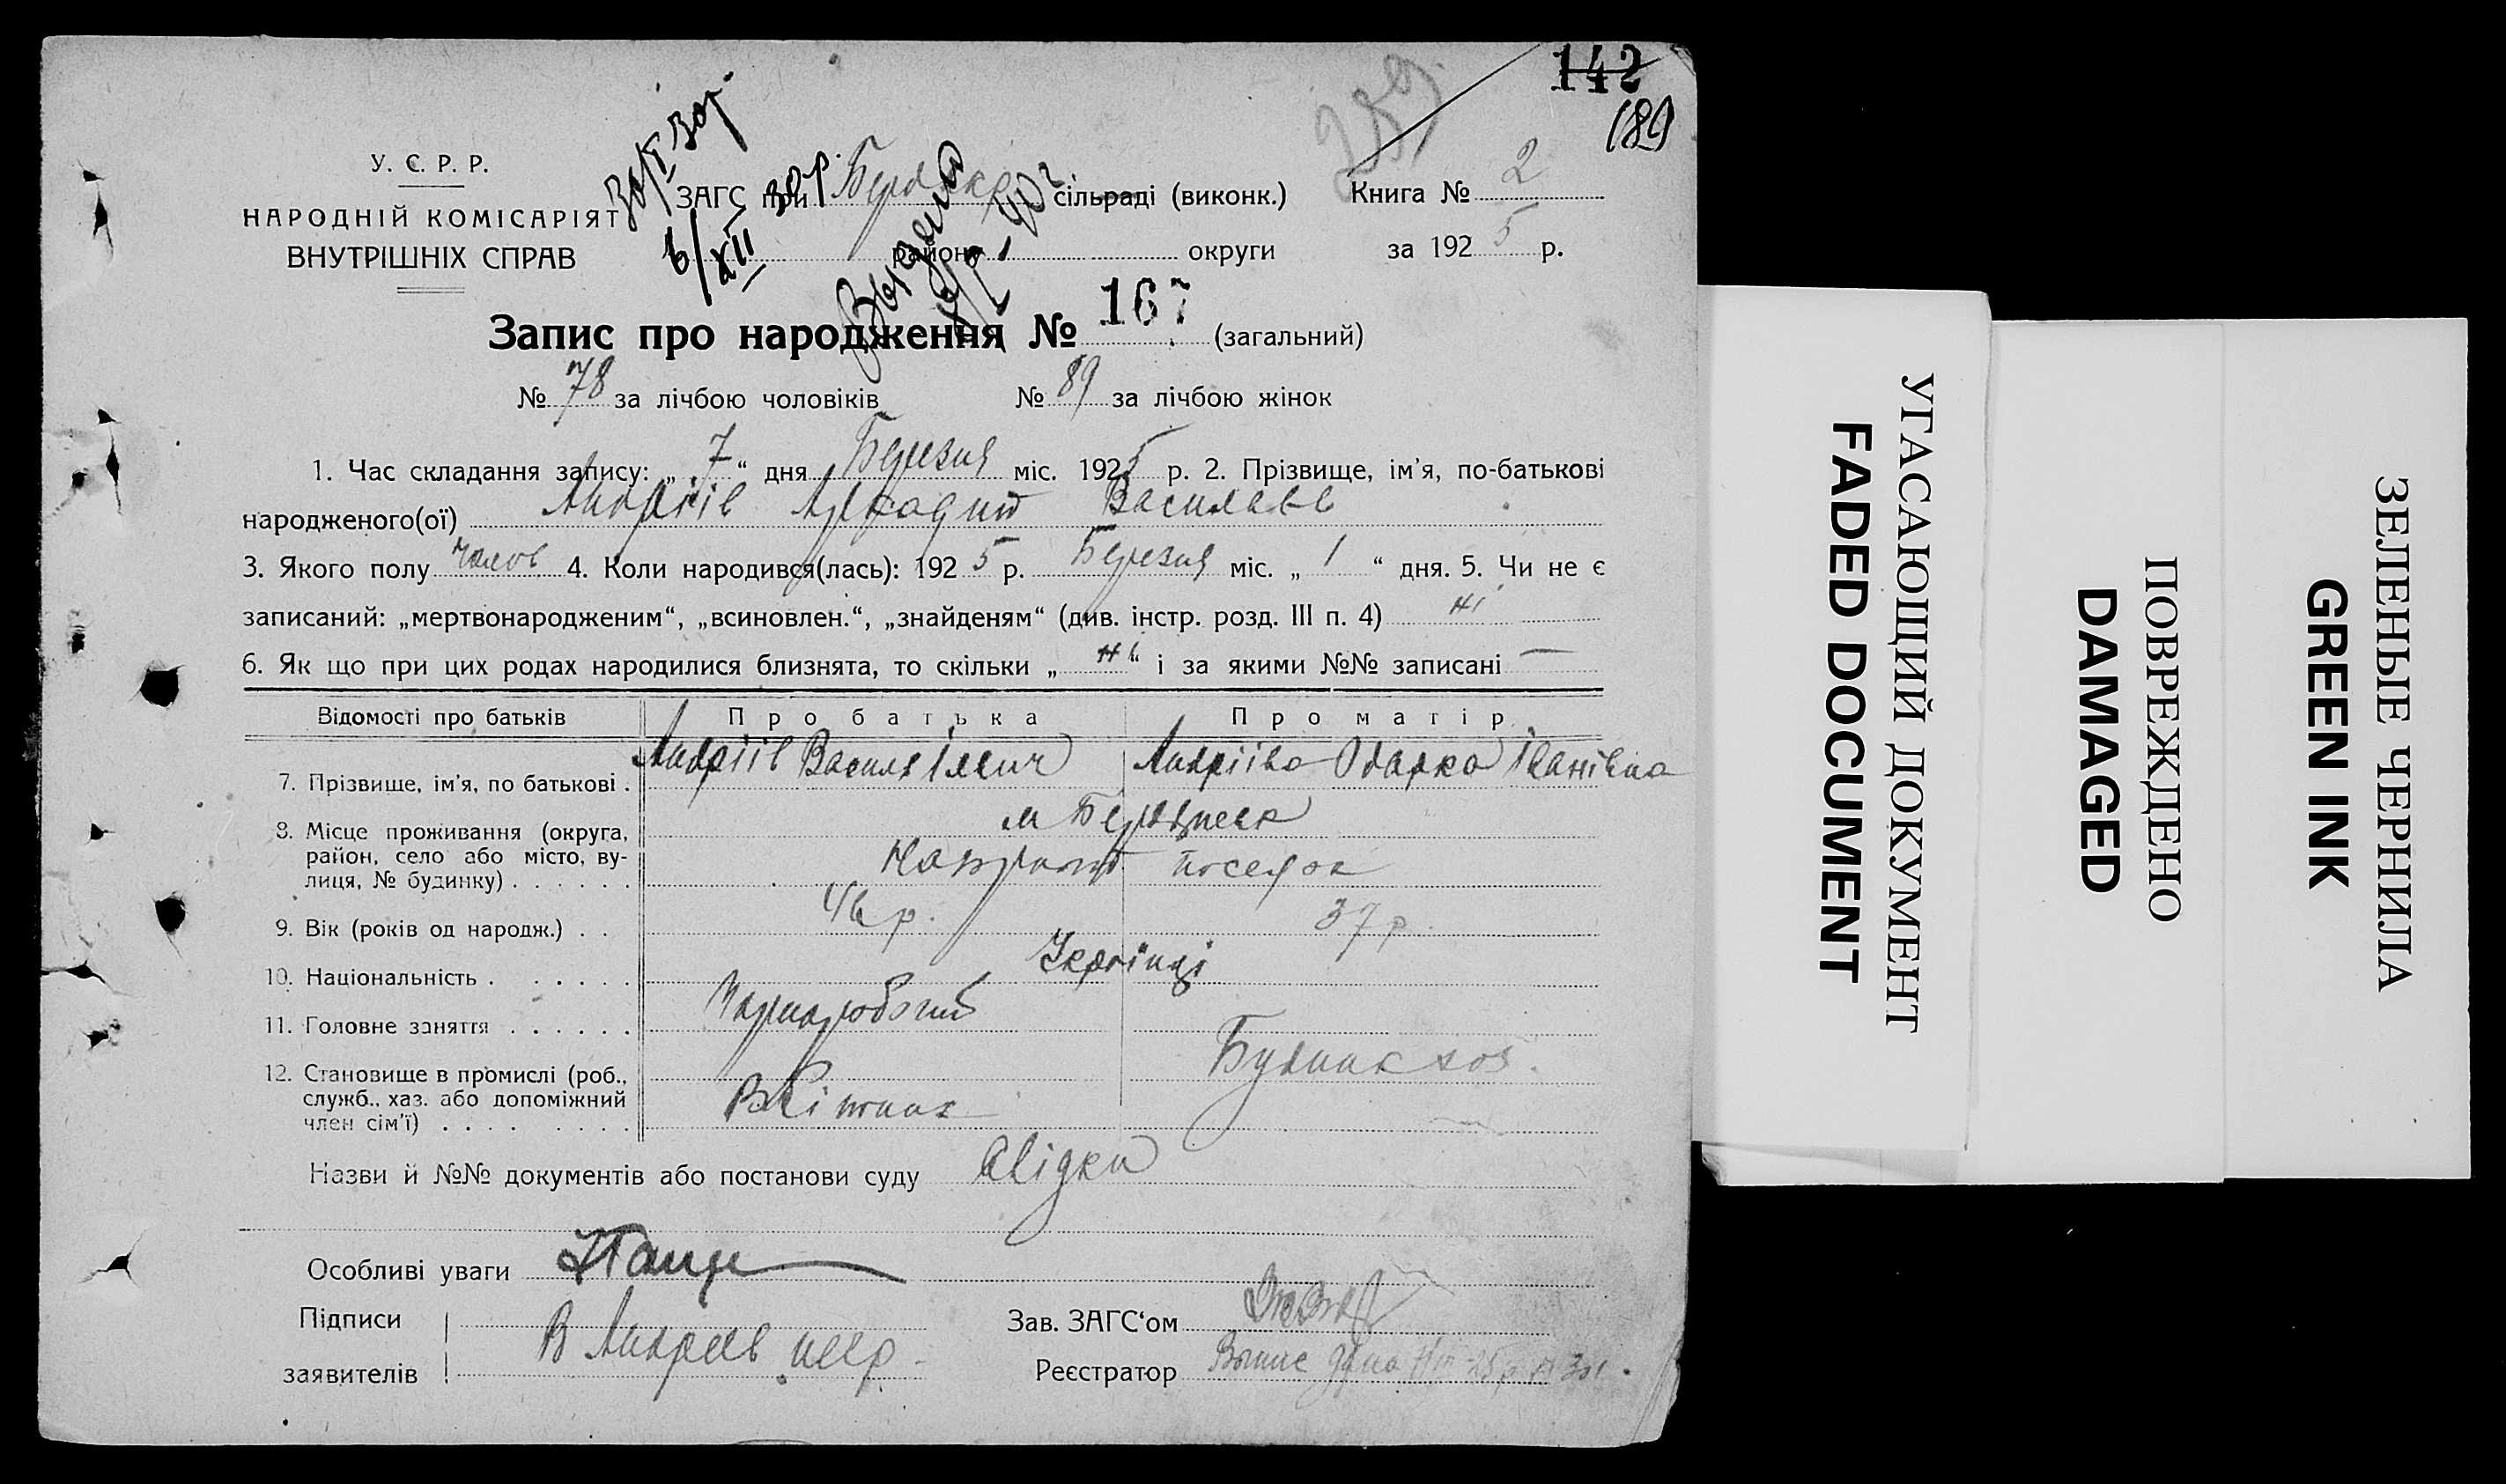 142
189
259
У. С. Р. Р.
НАРОДНІЙ КОМІСАРІЯТ
ВНУТРІШНІХ СПРАВ
ЗАГС при сільраді (виконк.)
району округи
Книга № 2
за 1925 р.
6/XII 30 р.
Запис про народження № 167 (загальний)
№ 78 за лічбою чоловіків № 89 за лічбою жінок
1. Час складання запису: „ 7 “ дня Березня міс. 1925 р. 2. Прізвище, ім'я, по-батькові
народженого(ої) Андріїв Аркадий Василев
3. Якого полу чолов 4. Коли народився(лась): 1925 р. Березня міс. „ 1 “ дня. 5. Чи не є
записаний: „мертвонародженим“, „всиновлен.“, „знайденям“ (див. інстр. розд. III п. 4) ні
6. Як що при цих родах народилися близнята, то скільки „ ні “ і за якими №№ записані —
Відомості про батьків Про батька Про матір
7. Прізвище, ім'я, по батькові . Андріїв Василь Ілліч Андрііва Одарка Іванівна
8. Місце проживання (округа,
район, село або місто, ву-
лиця, № будинку) . . . . . .
м Бердянськ
поселок
9. Вік (років од народж.) . . 46 р. 37 р.
10. Національність . . . . . . Українці
11. Головне заняття . . . . . . Чорнаробочий
12. Становище в промислі (роб.,
служб., хаз. або допоміжний
член сім'ї) . . . . . . . .
Назви й №№ документів або постанови суду Свідки
Особливі уваги
Підписи
заявителів
В Андреев
Зав. ЗАГС'ом
Реєстратор
УГАСАЮЩИЙ ДОКУМЕНТ
FADED DOCUMENT
ПОВРЕЖДЕНО
DAMAGED
ЗЕЛЕНЫЕ ЧЕРНИЛА
GREEN INK